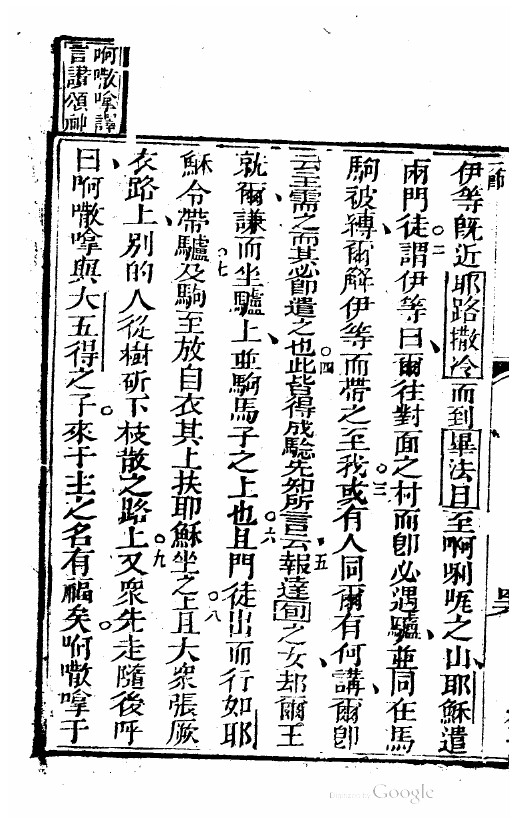 伊等既近耶路撒冷而到畢法日至啊唎咓之山耶穌遣
兩門徒二謂伊等曰爾往對面之村而即必遇驢並同在馬
駒被縛爾解伊等而帶之至我三或有人同爾有何講爾即
云主需之而其必即遣之也四此皆得成驗先知所言云五報達旬之女却爾王
就爾謙而坐驢上並駒馬子之上也六且門徒出而行如耶
穌令七帶驢及駒至放自衣其上扶耶穌坐之上八且大衆張厥
衣路上別的人從樹斫下枝散之路上九又衆先走隨後呼
曰啊嚫嗱與大五得之子來于主之名有福矣啊嚫嗱于
啊嚫嗱譯
言講頌
Google